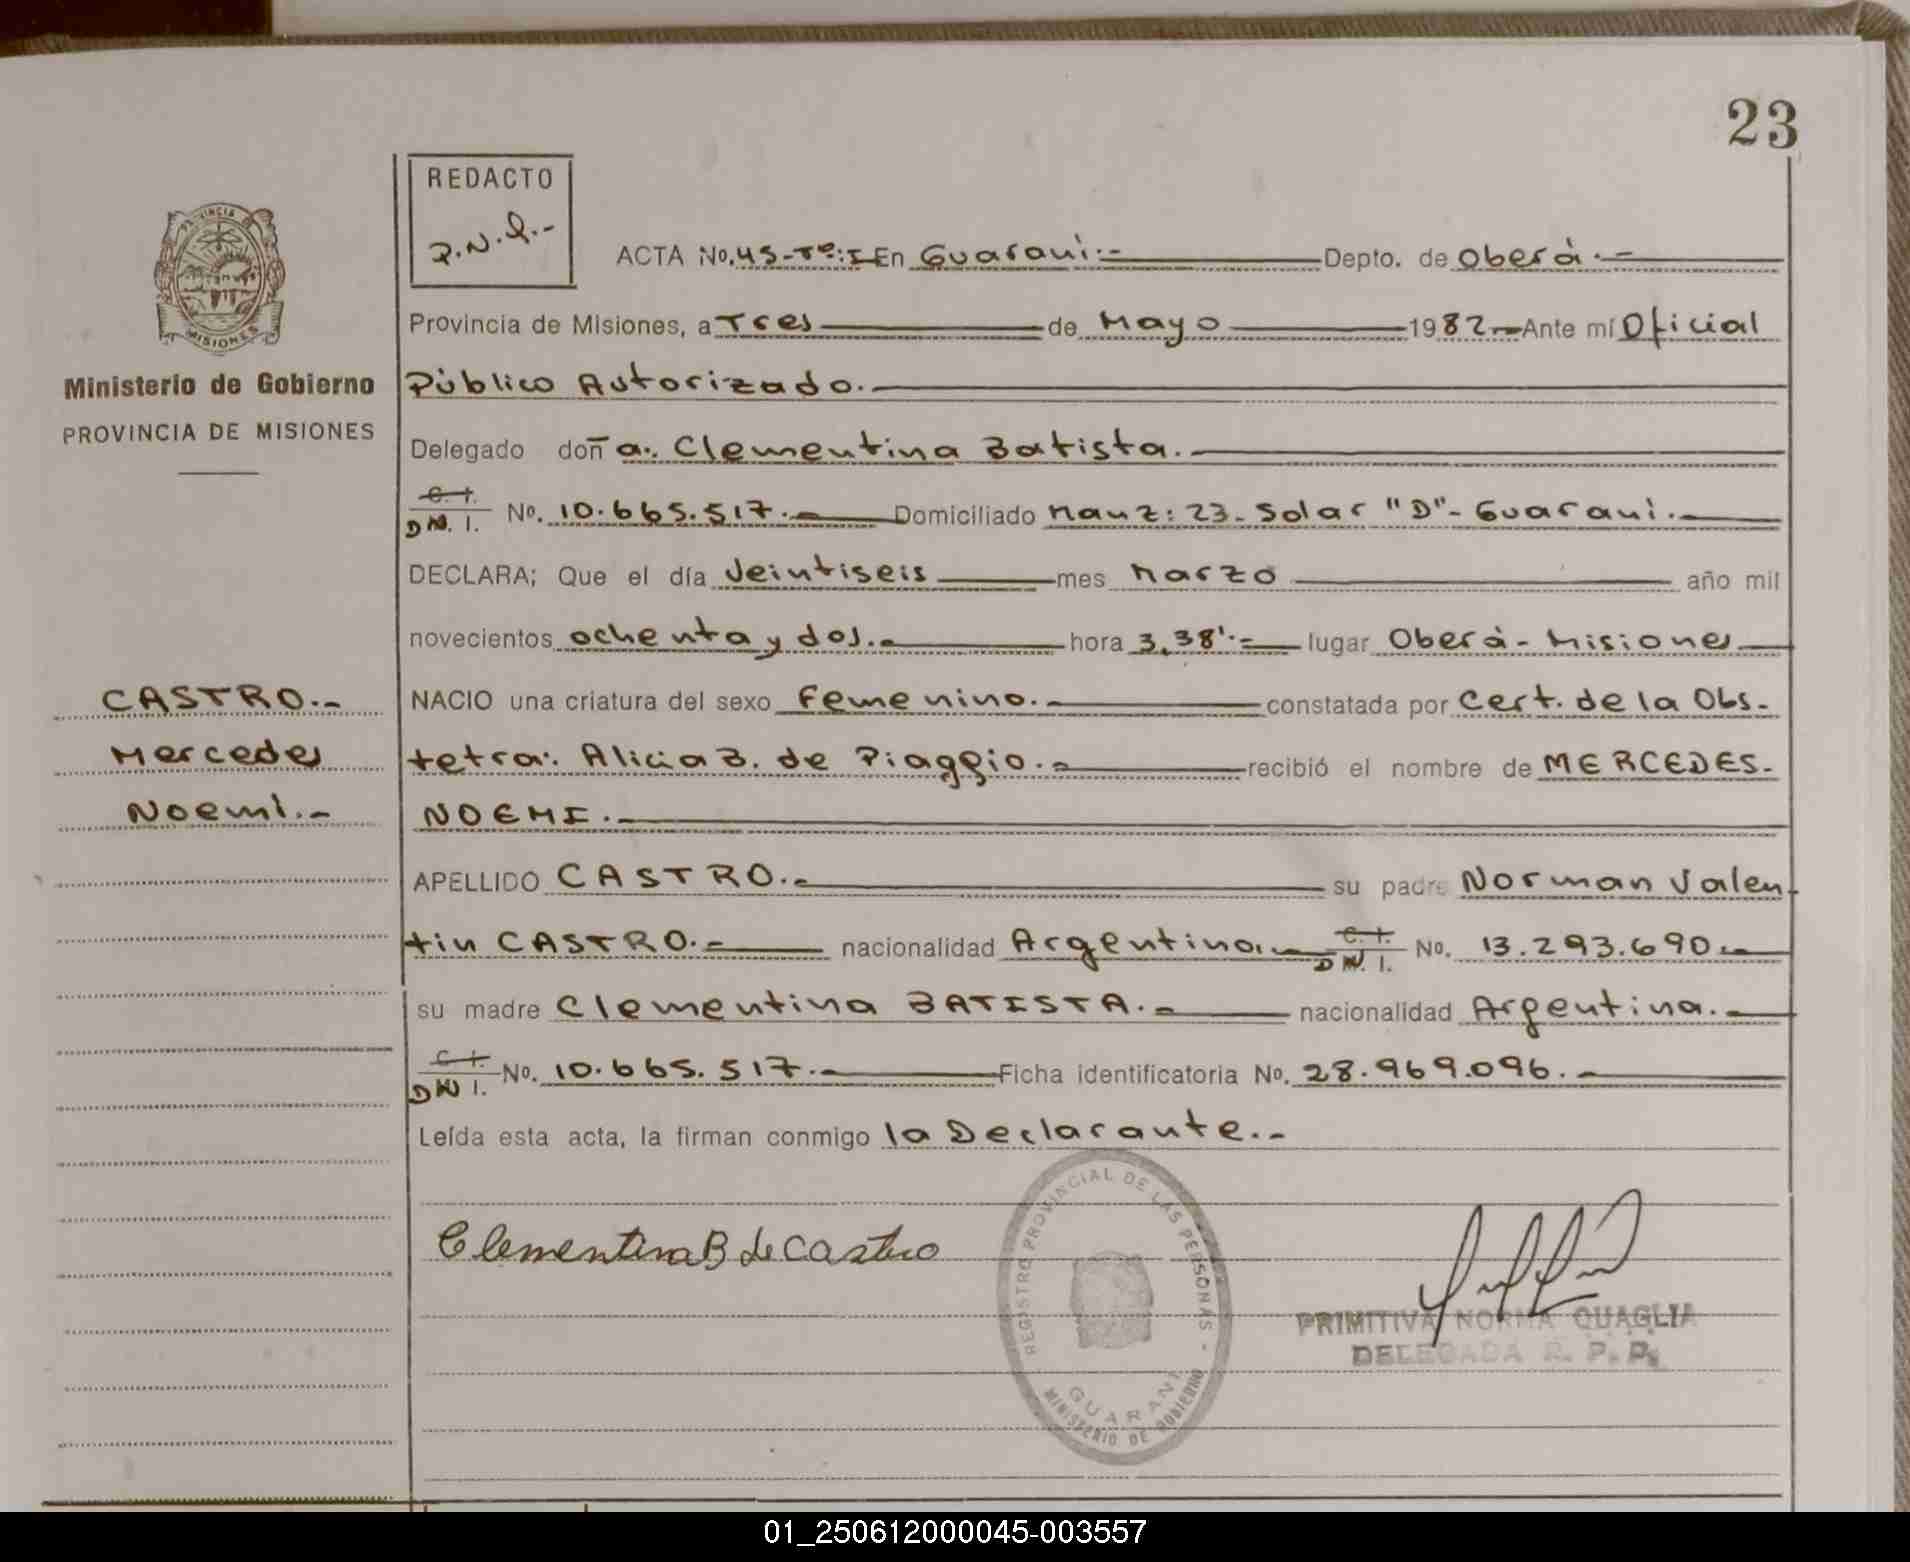 23
REDACTO
P.N.Q.-
PROVINCIA DE
MISIONES
ACTA No. 45-Tº:I En Guaraní.- Depto. de Oberá.-
Provincia de Misiones, a Tres de Mayo 1982.- Ante mí Oficial
Ministerio de Gobierno
PROVINCIA DE MISIONES
Público Autorizado.-
Delegado doña: Clementina Batista.-
C. I.
D N. I. No. 10.665.517.- Domiciliado Manz: 23- Solar "D"- Guaraní.-
DECLARA; Que el día Veintiseis mes Marzo año mil
novecientos ochenta y dos.- hora 3,38'.- lugar Oberá- Misiones
CASTRO.-
Mercedes
Noemí.-
NACIO una criatura del sexo Femenino.- constatada por Cert. de la Obs-
tetra: Alicia B. de Piaggio.- recibió el nombre de MERCEDES-
NOEMI.-
APELLIDO CASTRO.- su padre Norman Valen-
tin CASTRO.- nacionalidad Argentino.- C. I. D N. I. No. 13.293.690.-
su madre Clementina BATISTA.- nacionalidad Argentina.-
C. I.
D N I. No. 10.665.517.- Ficha identificatoria No. 28.969.096.-
Leída esta acta, la firman conmigo la Declarante.-
Clementina B de Castro
REGISTRO PROVINCIAL DE LAS PERSONAS -
GUARANI
MINISTERIO DE GOBIERNO
PRIMITIVA NORMA QUAGLIA
DELEGADA R. P. P.
01_250612000045-003557